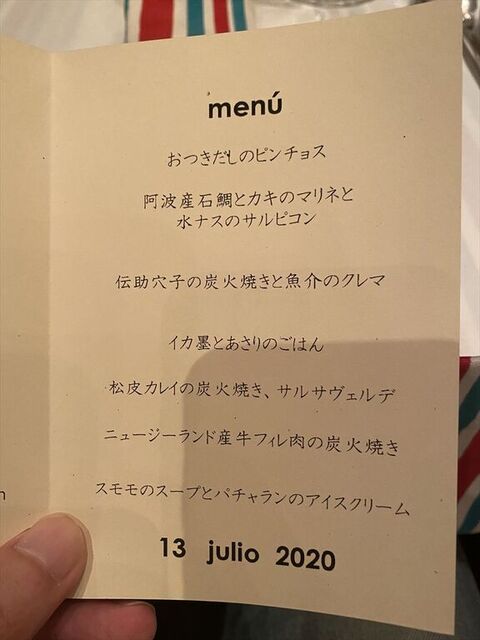 menú
おつきだしのピンチョス
阿波産石鯛とカキのマリネと
水ナスのサルピコン
伝助穴子の炭火焼きと魚介のクレマ
イカ墨とあさりのごはん
松皮カレイの炭火焼き、サルサヴェルデ
ニュージーランド産牛フィレ肉の炭火焼き
スモモのスープとパチャランのアイスクリーム
13 julio 2020